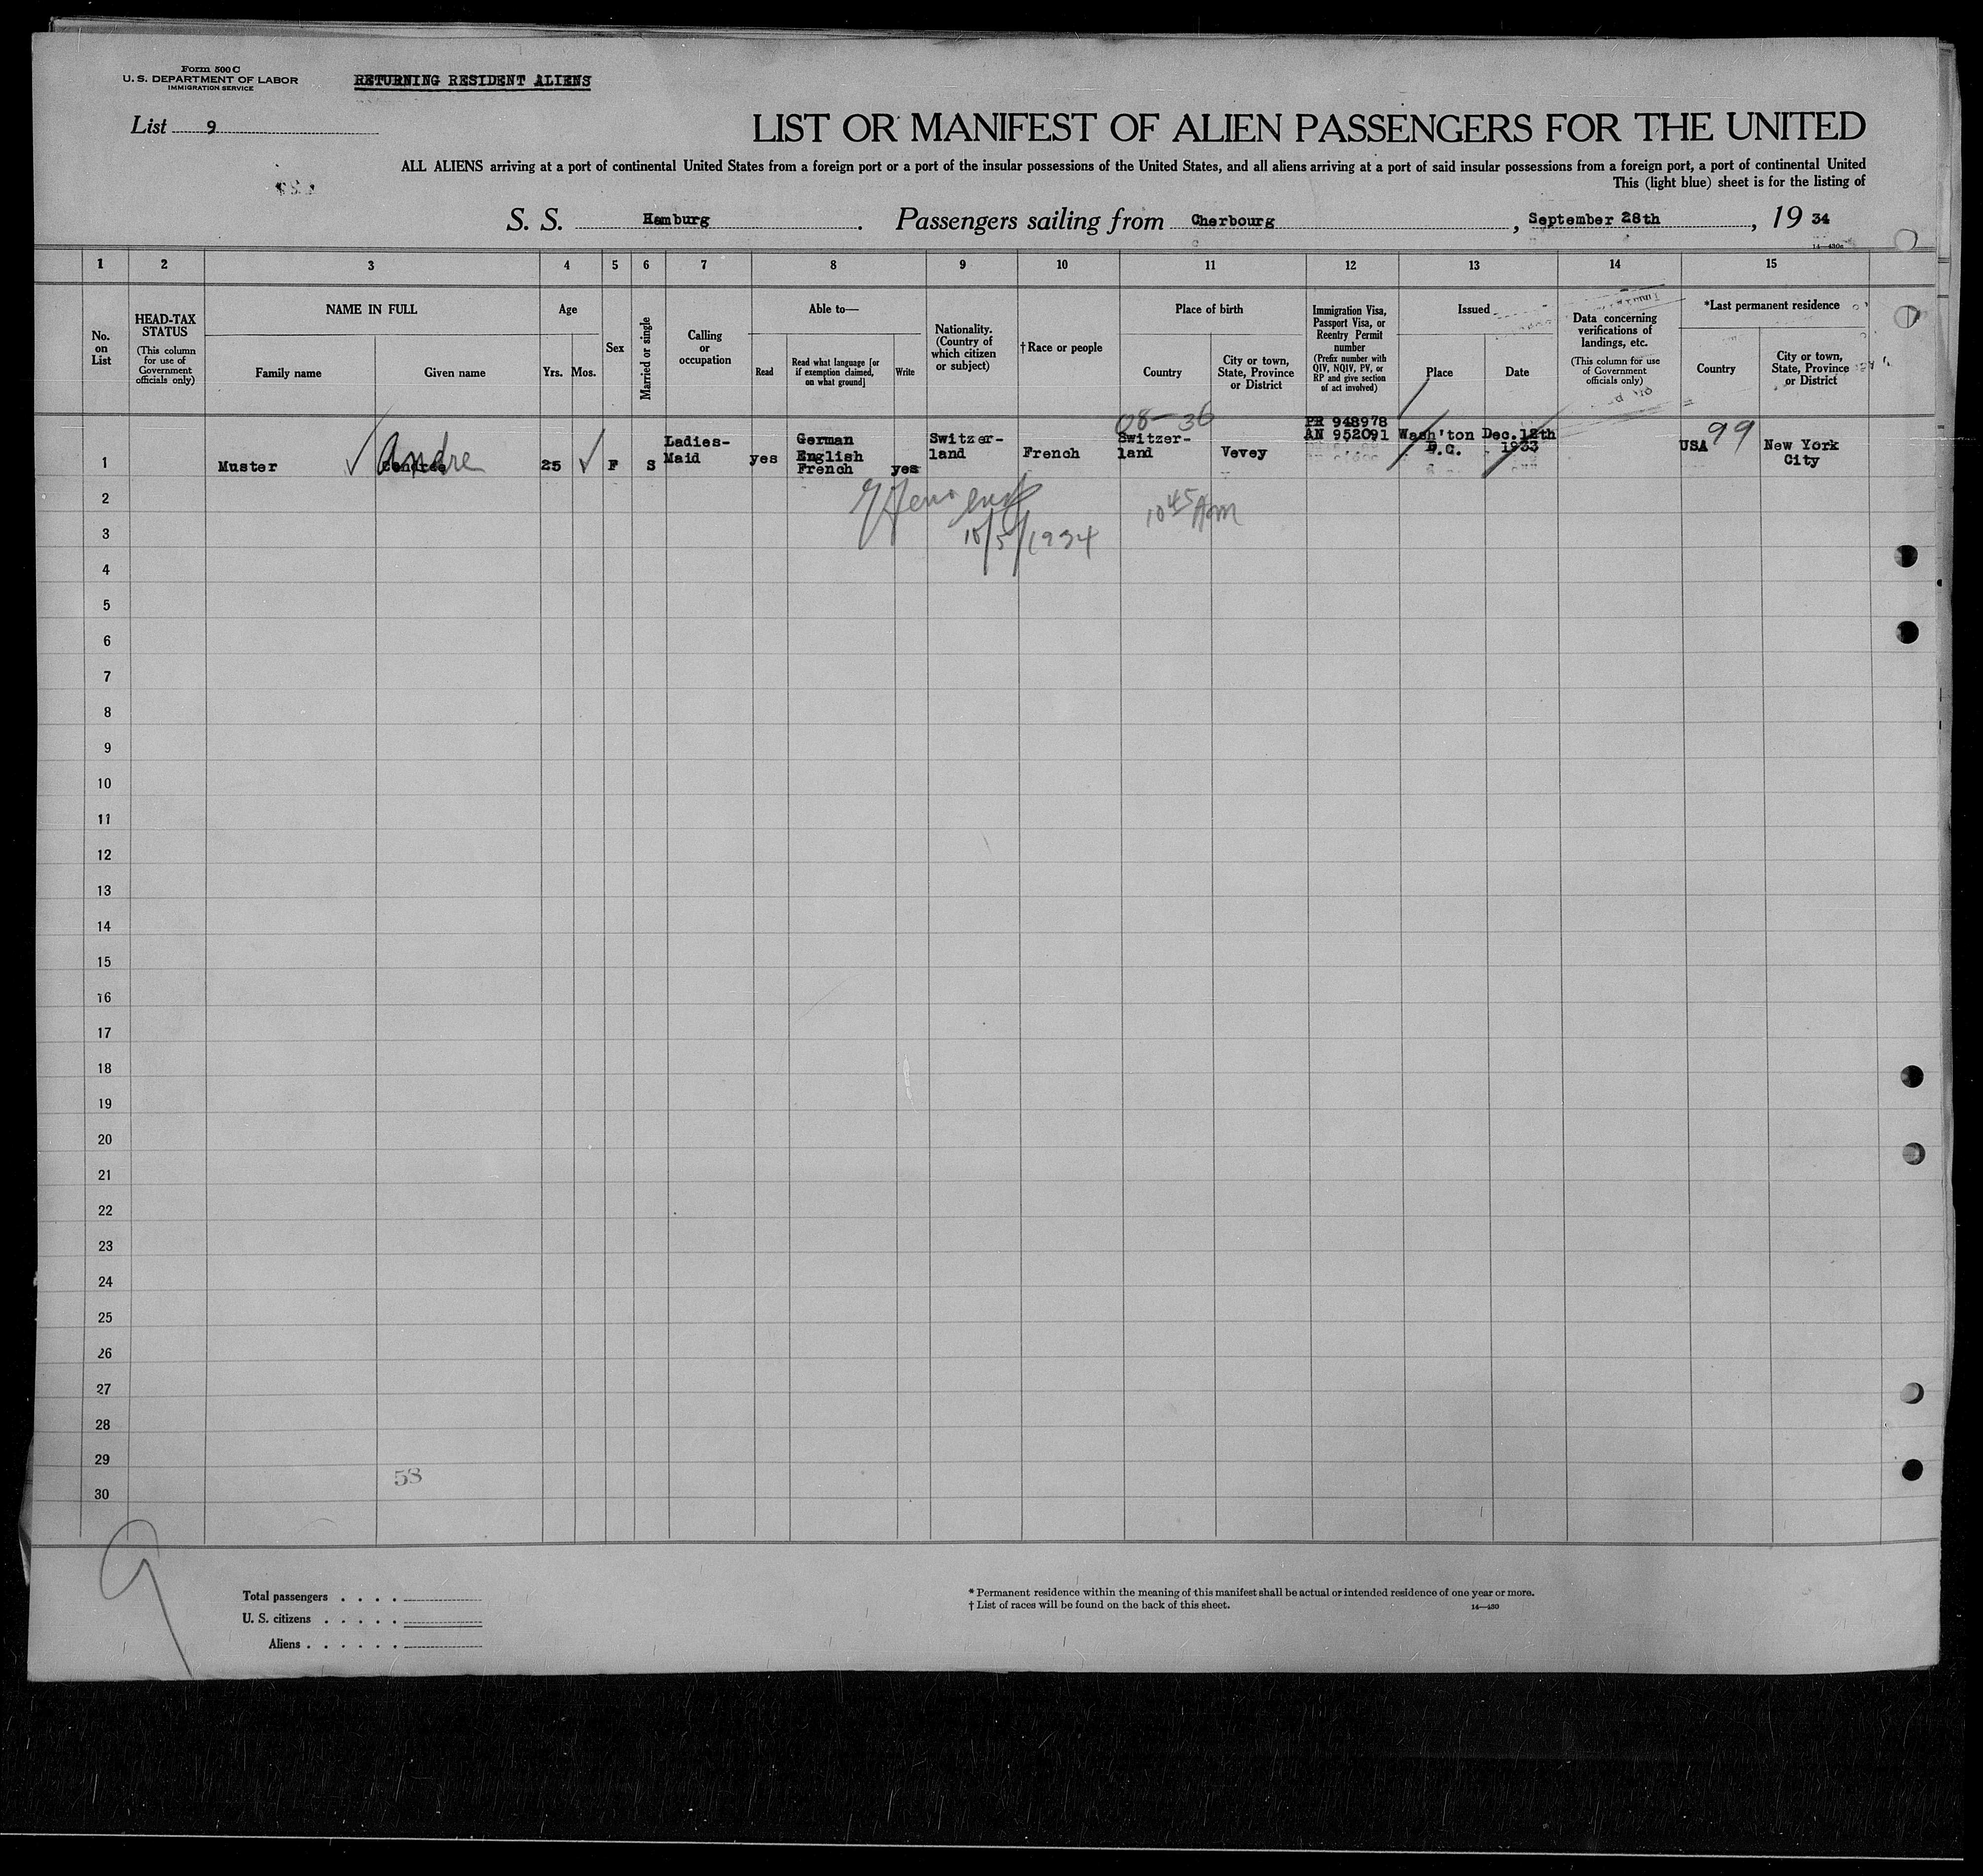 Form 500 C
U. S. DEPARTMENT OF LABOR
IMMIGRATION SERVICE
RETURNING RESIDENT ALIENS
List 9
LIST OR MANIFEST OF ALIEN PASSENGERS FOR THE UNITED
ALL ALIENS arriving at a port of continental United States from a foreign port or a port of the insular possessions of the United States, and all aliens arriving at a port of said insular possessions from a foreign port, a port of continental United
This (light blue) sheet is for the listing of
S. S. Hamburg. Passengers sailing from Cherbourg, September 28th, 19 34
14—430a
1 2 3 4 5 6 7 8 9 10 11 12 13 14 15
No. on List
HEAD-TAX STATUS
(This column for use of Government officials only)
NAME IN FULL
Family name
Given name
Age
Yrs.
Mos.
Sex
Married or single
Calling or occupation
Able to—
Read
Read what language [or if exemption claimed, on what ground]
Write
Nationality. (Country of which citizen or subject)
† Race or people
Place of birth
Country
City or town, State, Province or District
Immigration Visa, Passport Visa, or Reentry Permit number
(Prefix number with QIV, NQIV, PV, or RP and give section of act involved)
Issued
Place
Date
Data concerning verifications of landings, etc.
(This column for use of Government officials only)
*Last permanent residence
Country
City or town, State, Province or District
08-36
1 Muster Andre 25 F S Ladies-Maid yes German English French yes Switzer-land French Switzer-land Vevey PR 948978 AN 952091 Wash'ton D.C. Dec.12th 1933 USA 99 New York City
2
10 45 Am
3
10/5/1934
4
5
6
7
8
9
10
11
12
13
14
15
16
17
18
19
20
21
22
23
24
25
26
27
28
29
58
30
9
Total passengers . . . .
U. S. citizens . . . . .
Aliens . . . . . .
* Permanent residence within the meaning of this manifest shall be actual or intended residence of one year or more.
† List of races will be found on the back of this sheet.
14—430